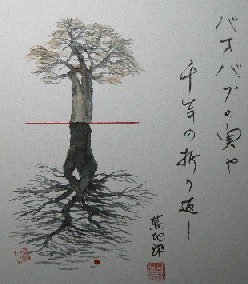 バオバブの実や
千年の折り返し